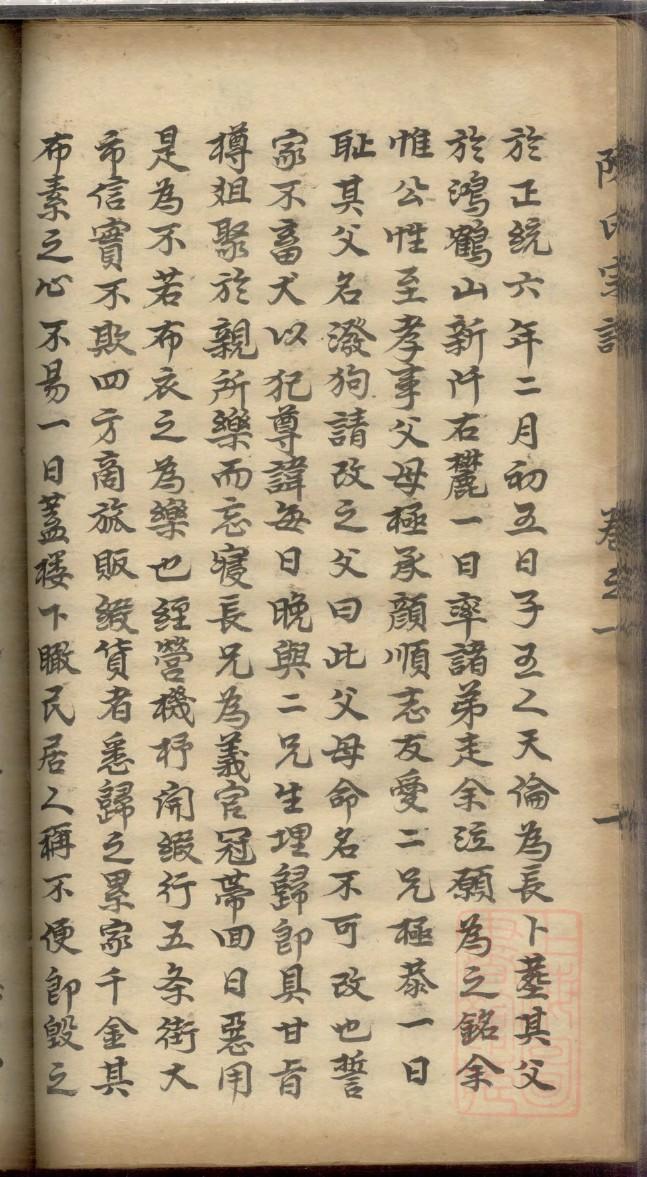 陳氏宗譜 卷之一 一
於正統六年二月初五日子五人天倫為長卜塟其父
於鴻鶴山新阡右麓一日率諸弟走余泣願為之銘余
惟公性至孝事父母極承顏順志友愛二兄極恭一日
耻其父名潑狗請改之父曰此父母命名不可改也誓
家不畜犬以犯尊諱每日晚與二兄生理歸卽具甘旨
樽俎聚於親所樂而忘寢長兄為義官冠帶回日惡用
是為不若布衣之為樂也經營機杼開緞行五条街大
市信實不欺四方商旅販緞貨者悉歸之累家千金其
布素之心不易一日蓋樓下瞰民居人稱不便卽毀之